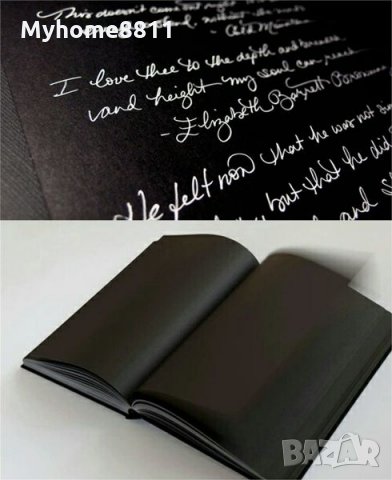 Myhome8811
This doesn't come out right
without the
I love thee to the depth and breadth
and height my soul can reach
- Elizabeth Barrett Browning
He felt now that he was not
but that he did
and
BAZAR